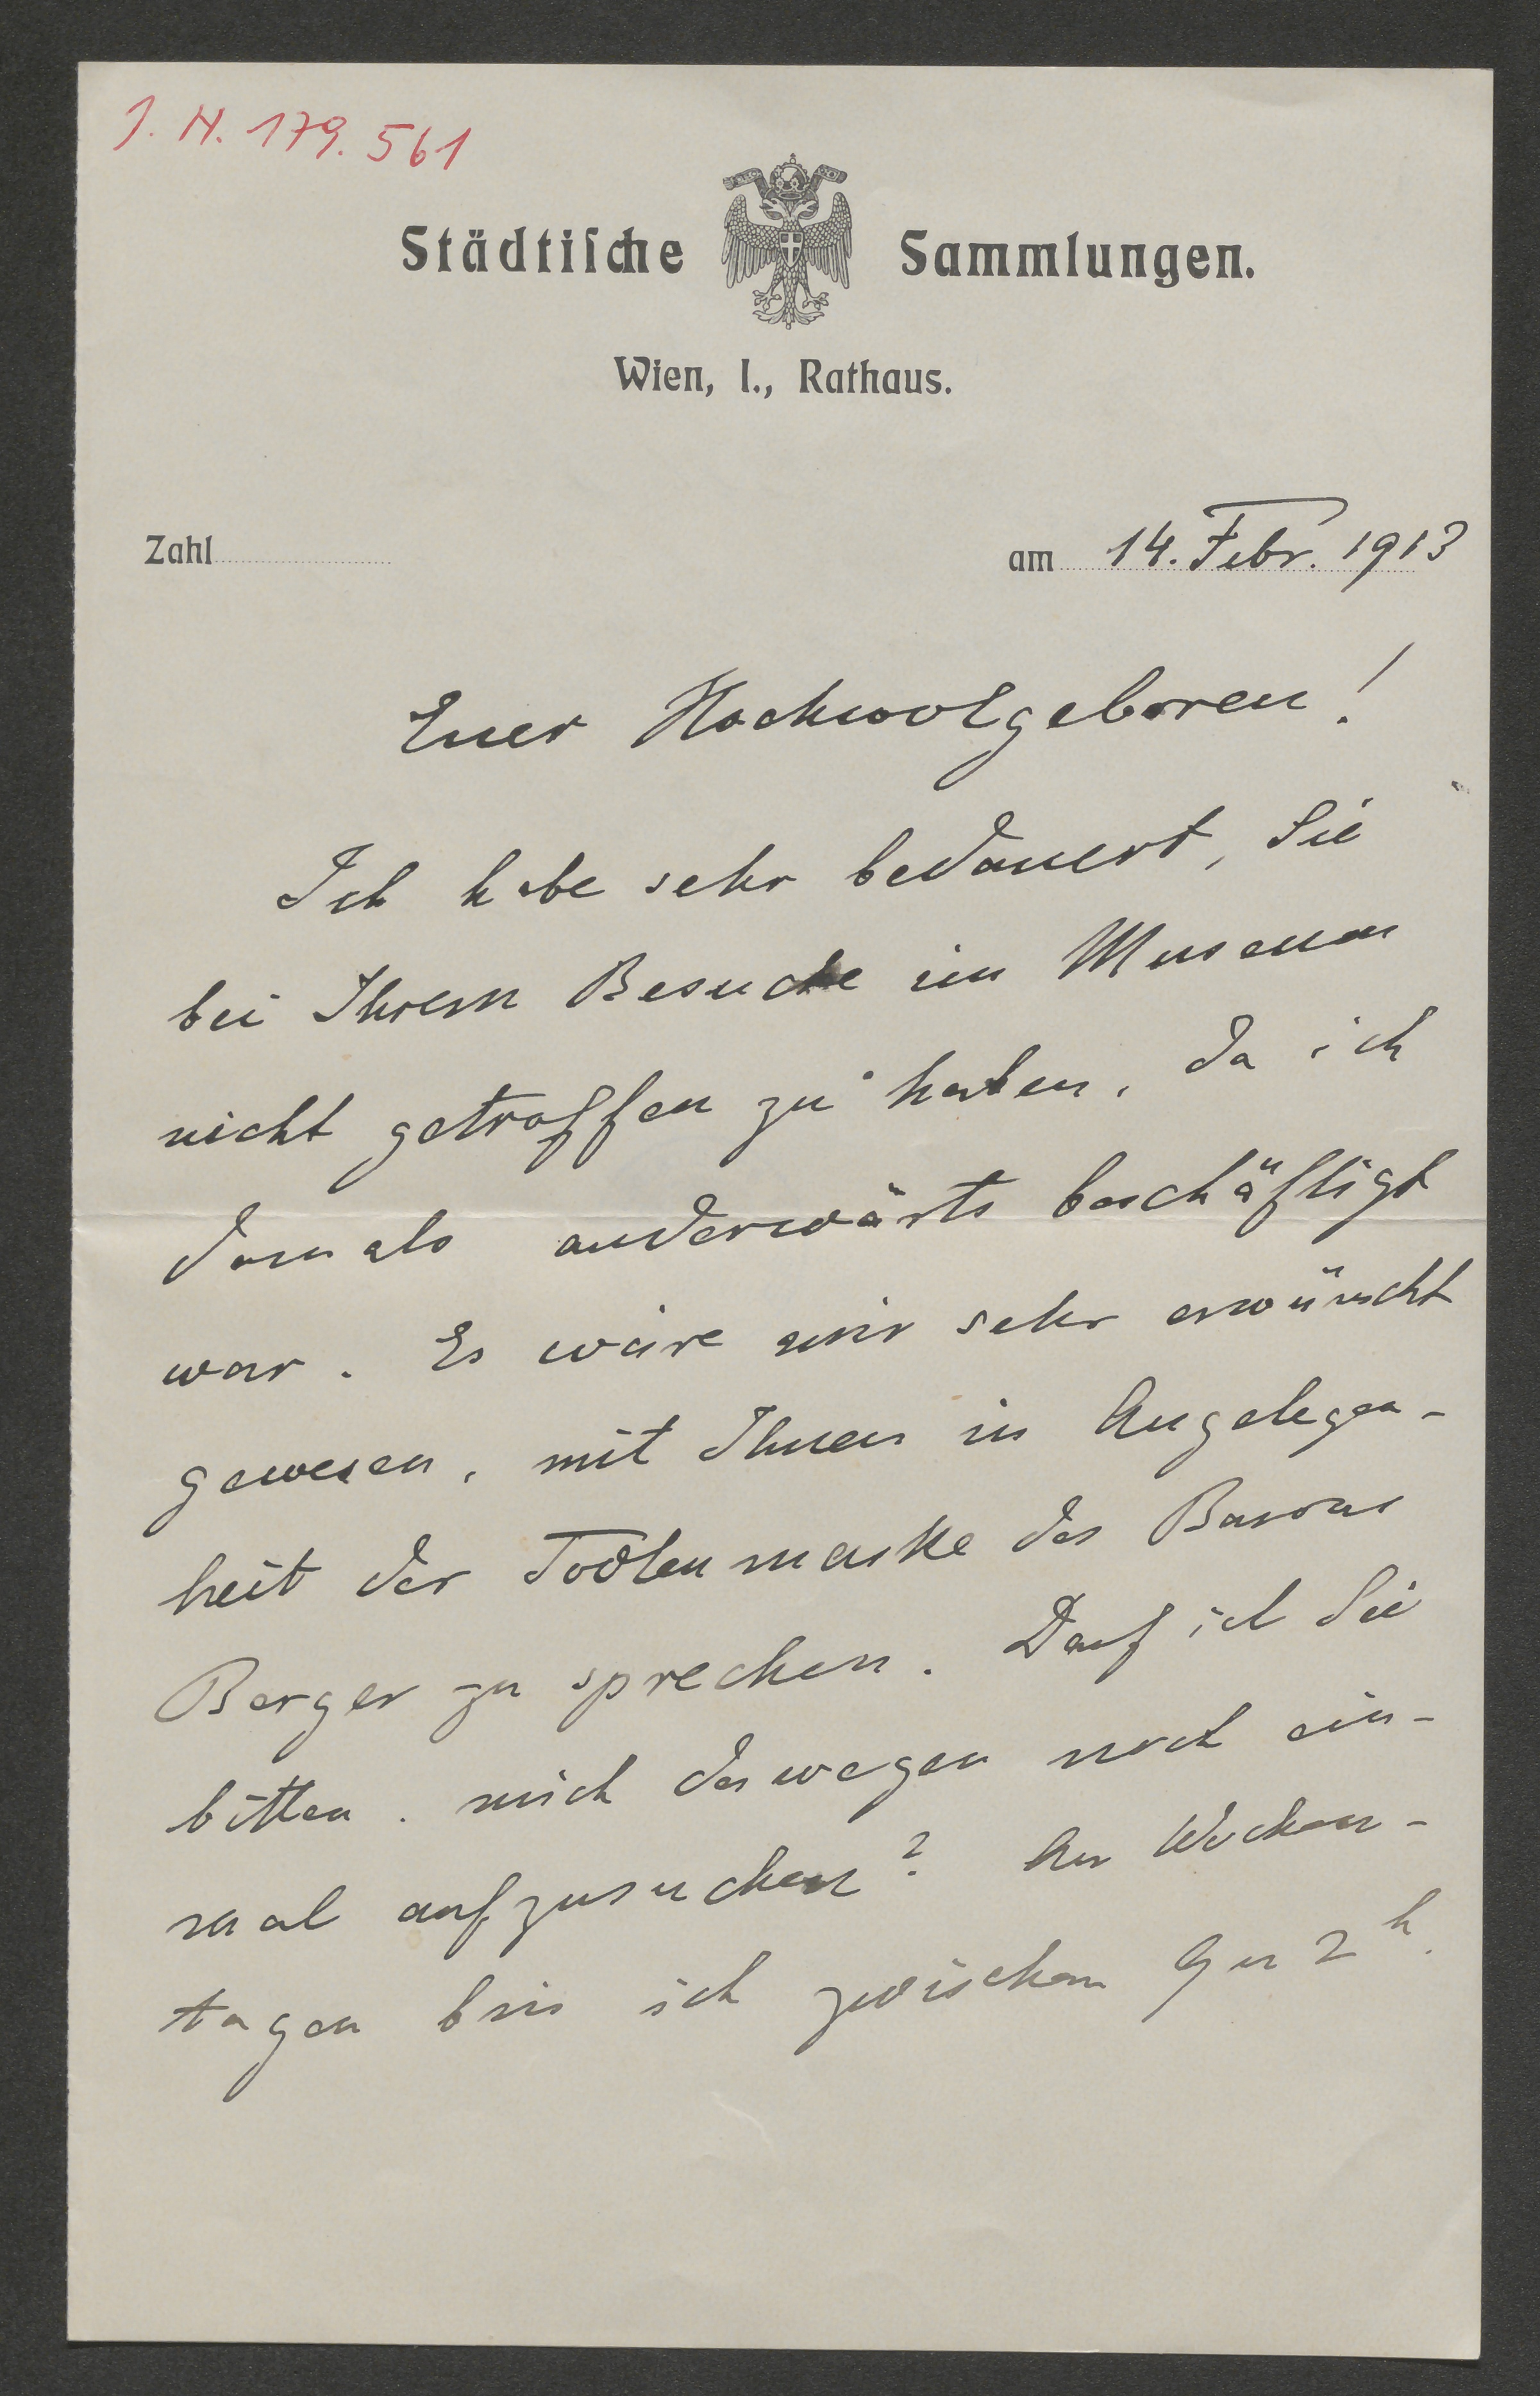 J. N. 179.561
Städtiſche Sammlungen.
Wien, I., Rathaus.
Zahl
am 14. Febr. 1913
Euer Hochwolgeboren!
Ich habe sehr bedauert, Sie
bei Ihrem Besuche im Museum
nicht getroffen zu haben, da ich
damals anderwärts beschäftigt
war. Es wäre mir sehr erwünscht
gewesen, mit Ihnen in Angelegen-
heit der Todtenmaske des Barons
Berger zu sprechen. Darf ich Sie
bitten, mich deswegen noch ein-
mal aufzusuchen? An Wochen-
tagen bin ich zwischen 9 u 2 h.